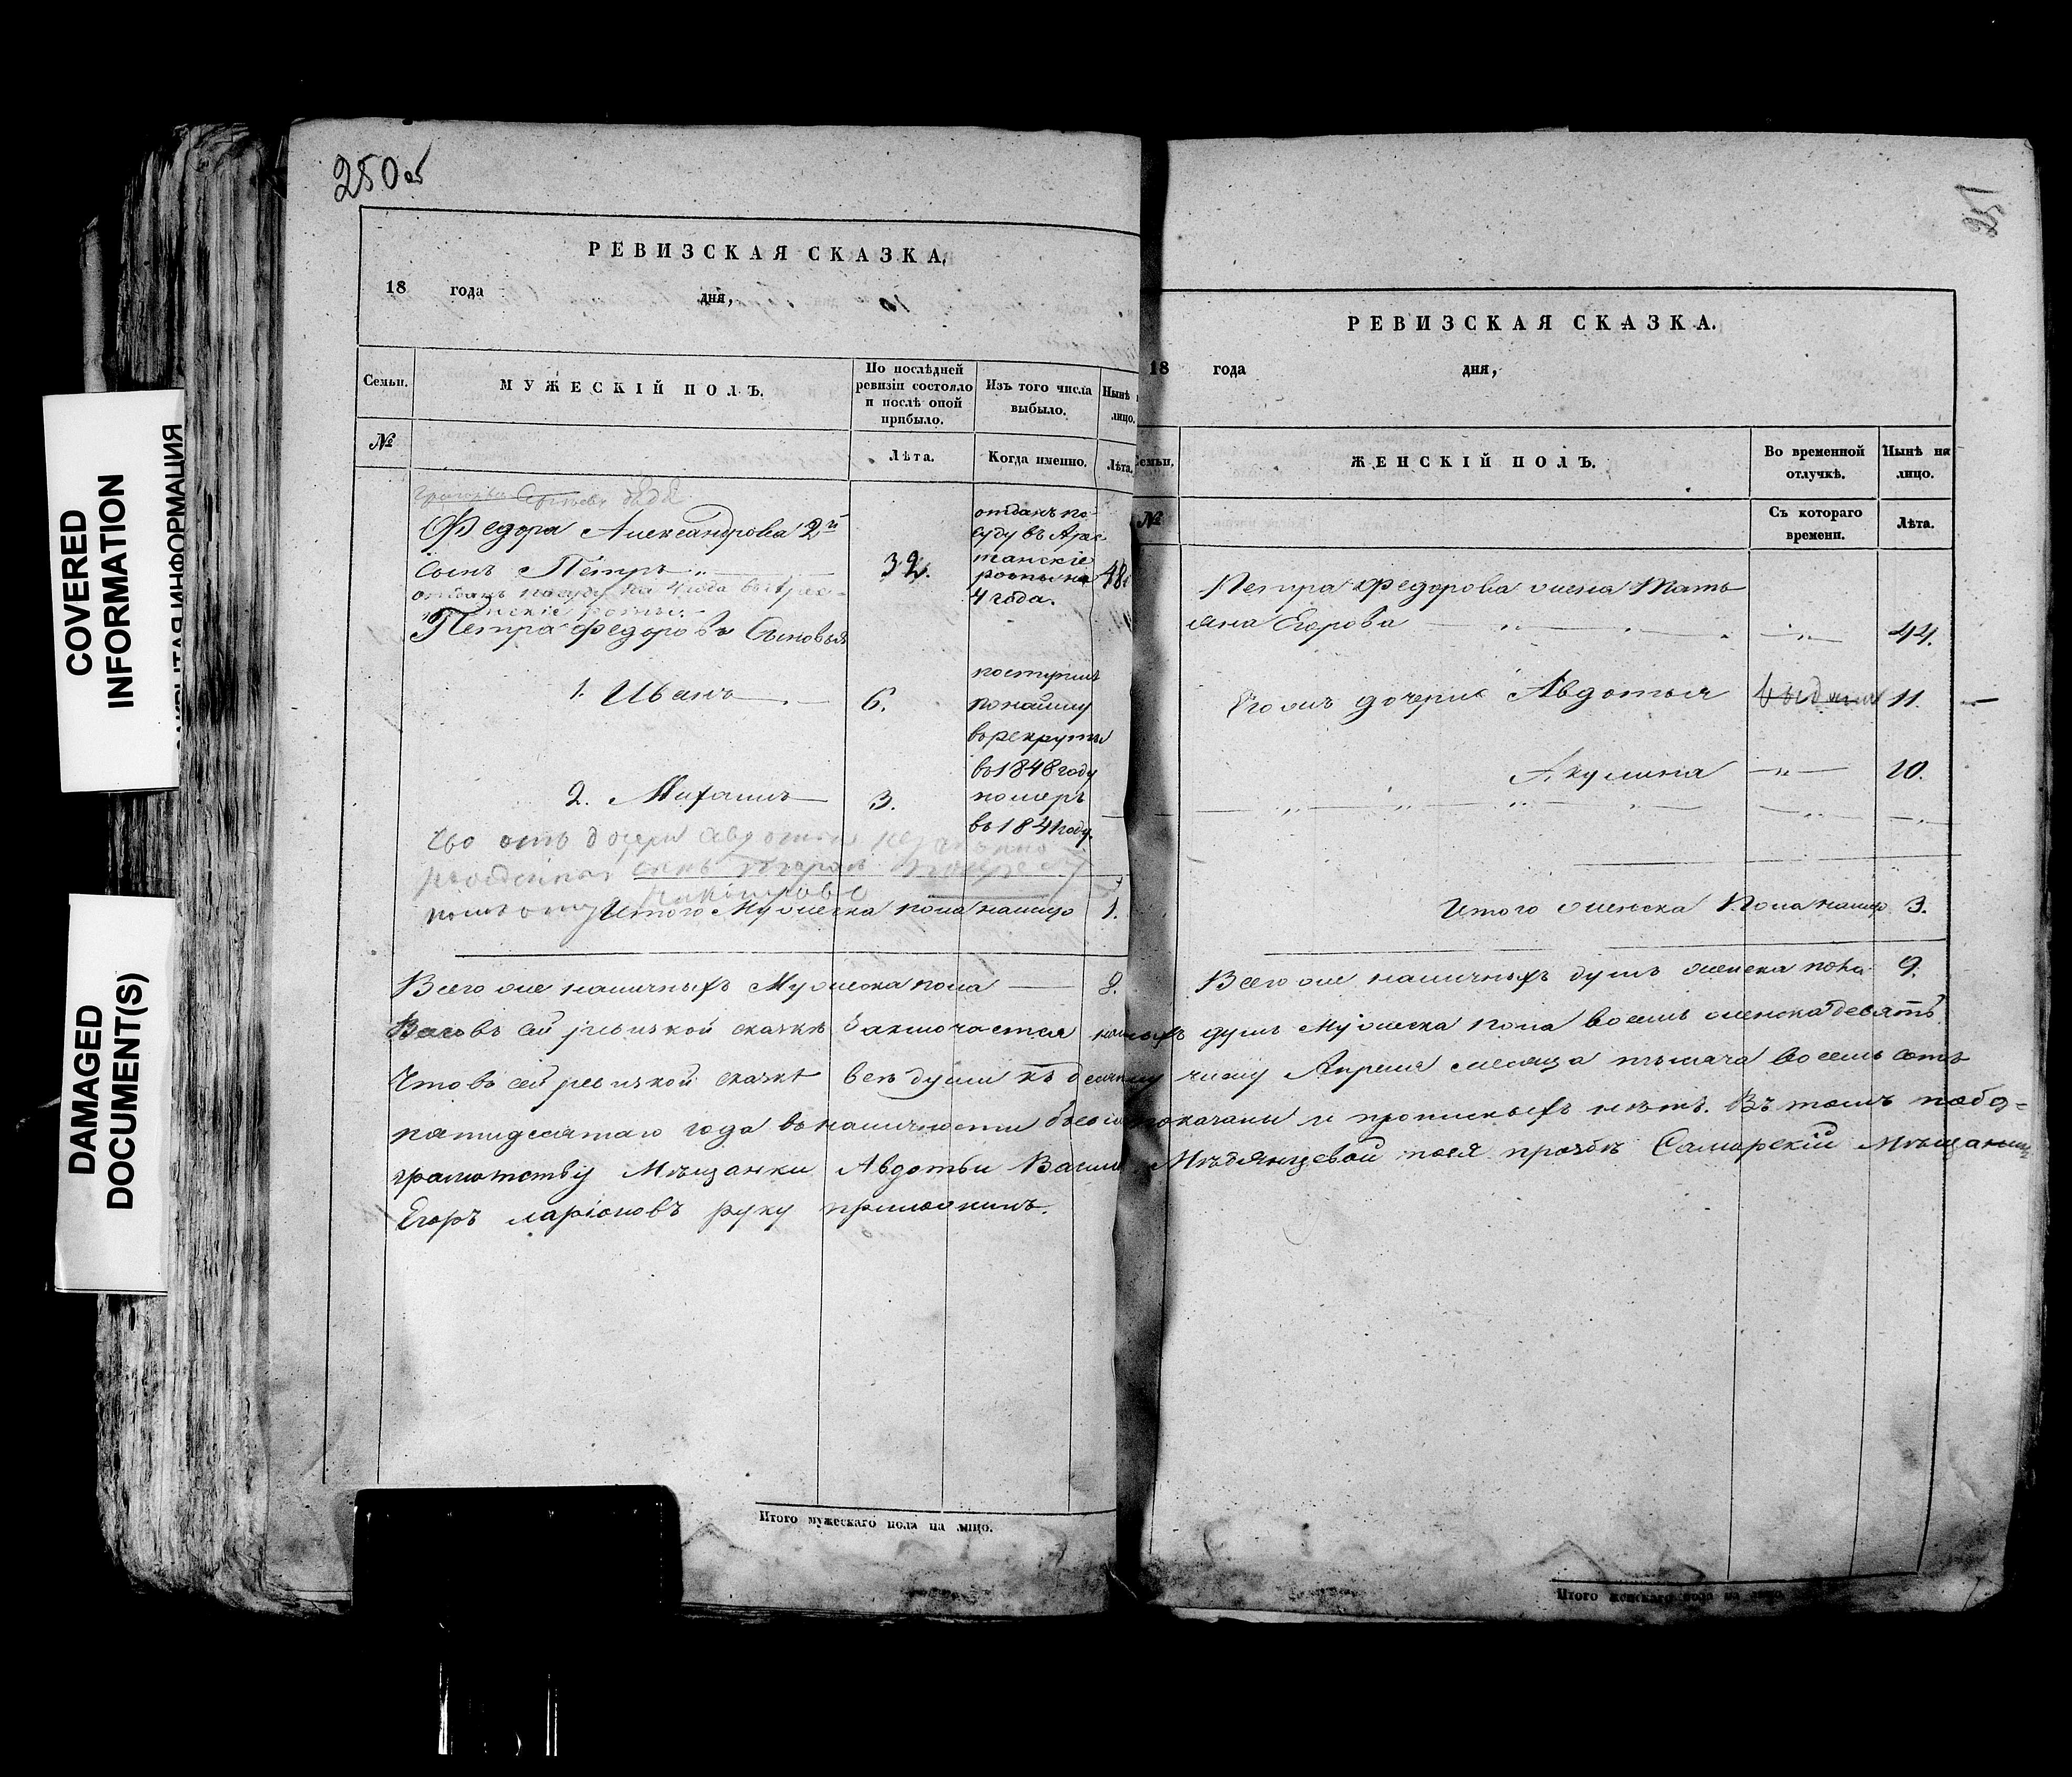 COVERED
INFORMATION
DAMAGED
DOCUMENT(S)
250об
РЕВИЗСКАЯ СКАЗКА,
18 года дня,
Семьи. МУЖЕСКІЙ ПОЛЪ. По послѣдней ревизіи состояло и послѣ оной прибыло. Изъ того числа выбыло. Нынѣ на лицо.
№ Лѣта. Когда именно. Лѣта.
Федора Александрова 2й
сынъ Петръ 32. отданъ по суду въ Арестанскіе роты на 4 года. 48
отданъ по суду на 4 года въ Арес-
танскіе роты.
Петра Федорова Сыновья
1. Иванъ 6. поступилъ по найму въ рекруты въ 1848 году
2. Михаилъ 3. померъ въ 1841 году.
его отъ дочери Авдотьи незаконно
рожденный сынъ
Итого Мужеска пола налицо 1.
Всего же наличныхъ Мужеска пола 8.
251
РЕВИЗСКАЯ СКАЗКА.
18 года дня,
Семьи. ЖЕНСКІЙ ПОЛЪ. Во временной отлучкѣ. Нынѣ на лицо.
№ Съ котораго времени. Лѣта.
Петра Федорова жена Тать
яна Егорова 44.
Его жъ дочери Авдотья 11.
Акулина 10.
Итого женска Пола налицо 3.
Всего же наличныхъ душъ женска пола 9.
въ сей ревизкой сказкѣ Заключается душъ Мужеска пола восемь женска девять
Что въ сей ревизкой сказкѣ всѣ души къ десятому числу Апреля месяца тысяча восемь сотъ
пятидесятаго года въ наличности бывшіе показаны и прописныхъ нѣтъ. Въ томъ
грамотству Мещанки Авдотьи Мѣдянцевой поея прозбѣ Самарскій Мѣщанинъ
Егоръ ларіоновъ руку приложилъ.
Итого мужескаго пола на лицо.
Итого женскаго пола на лицо.